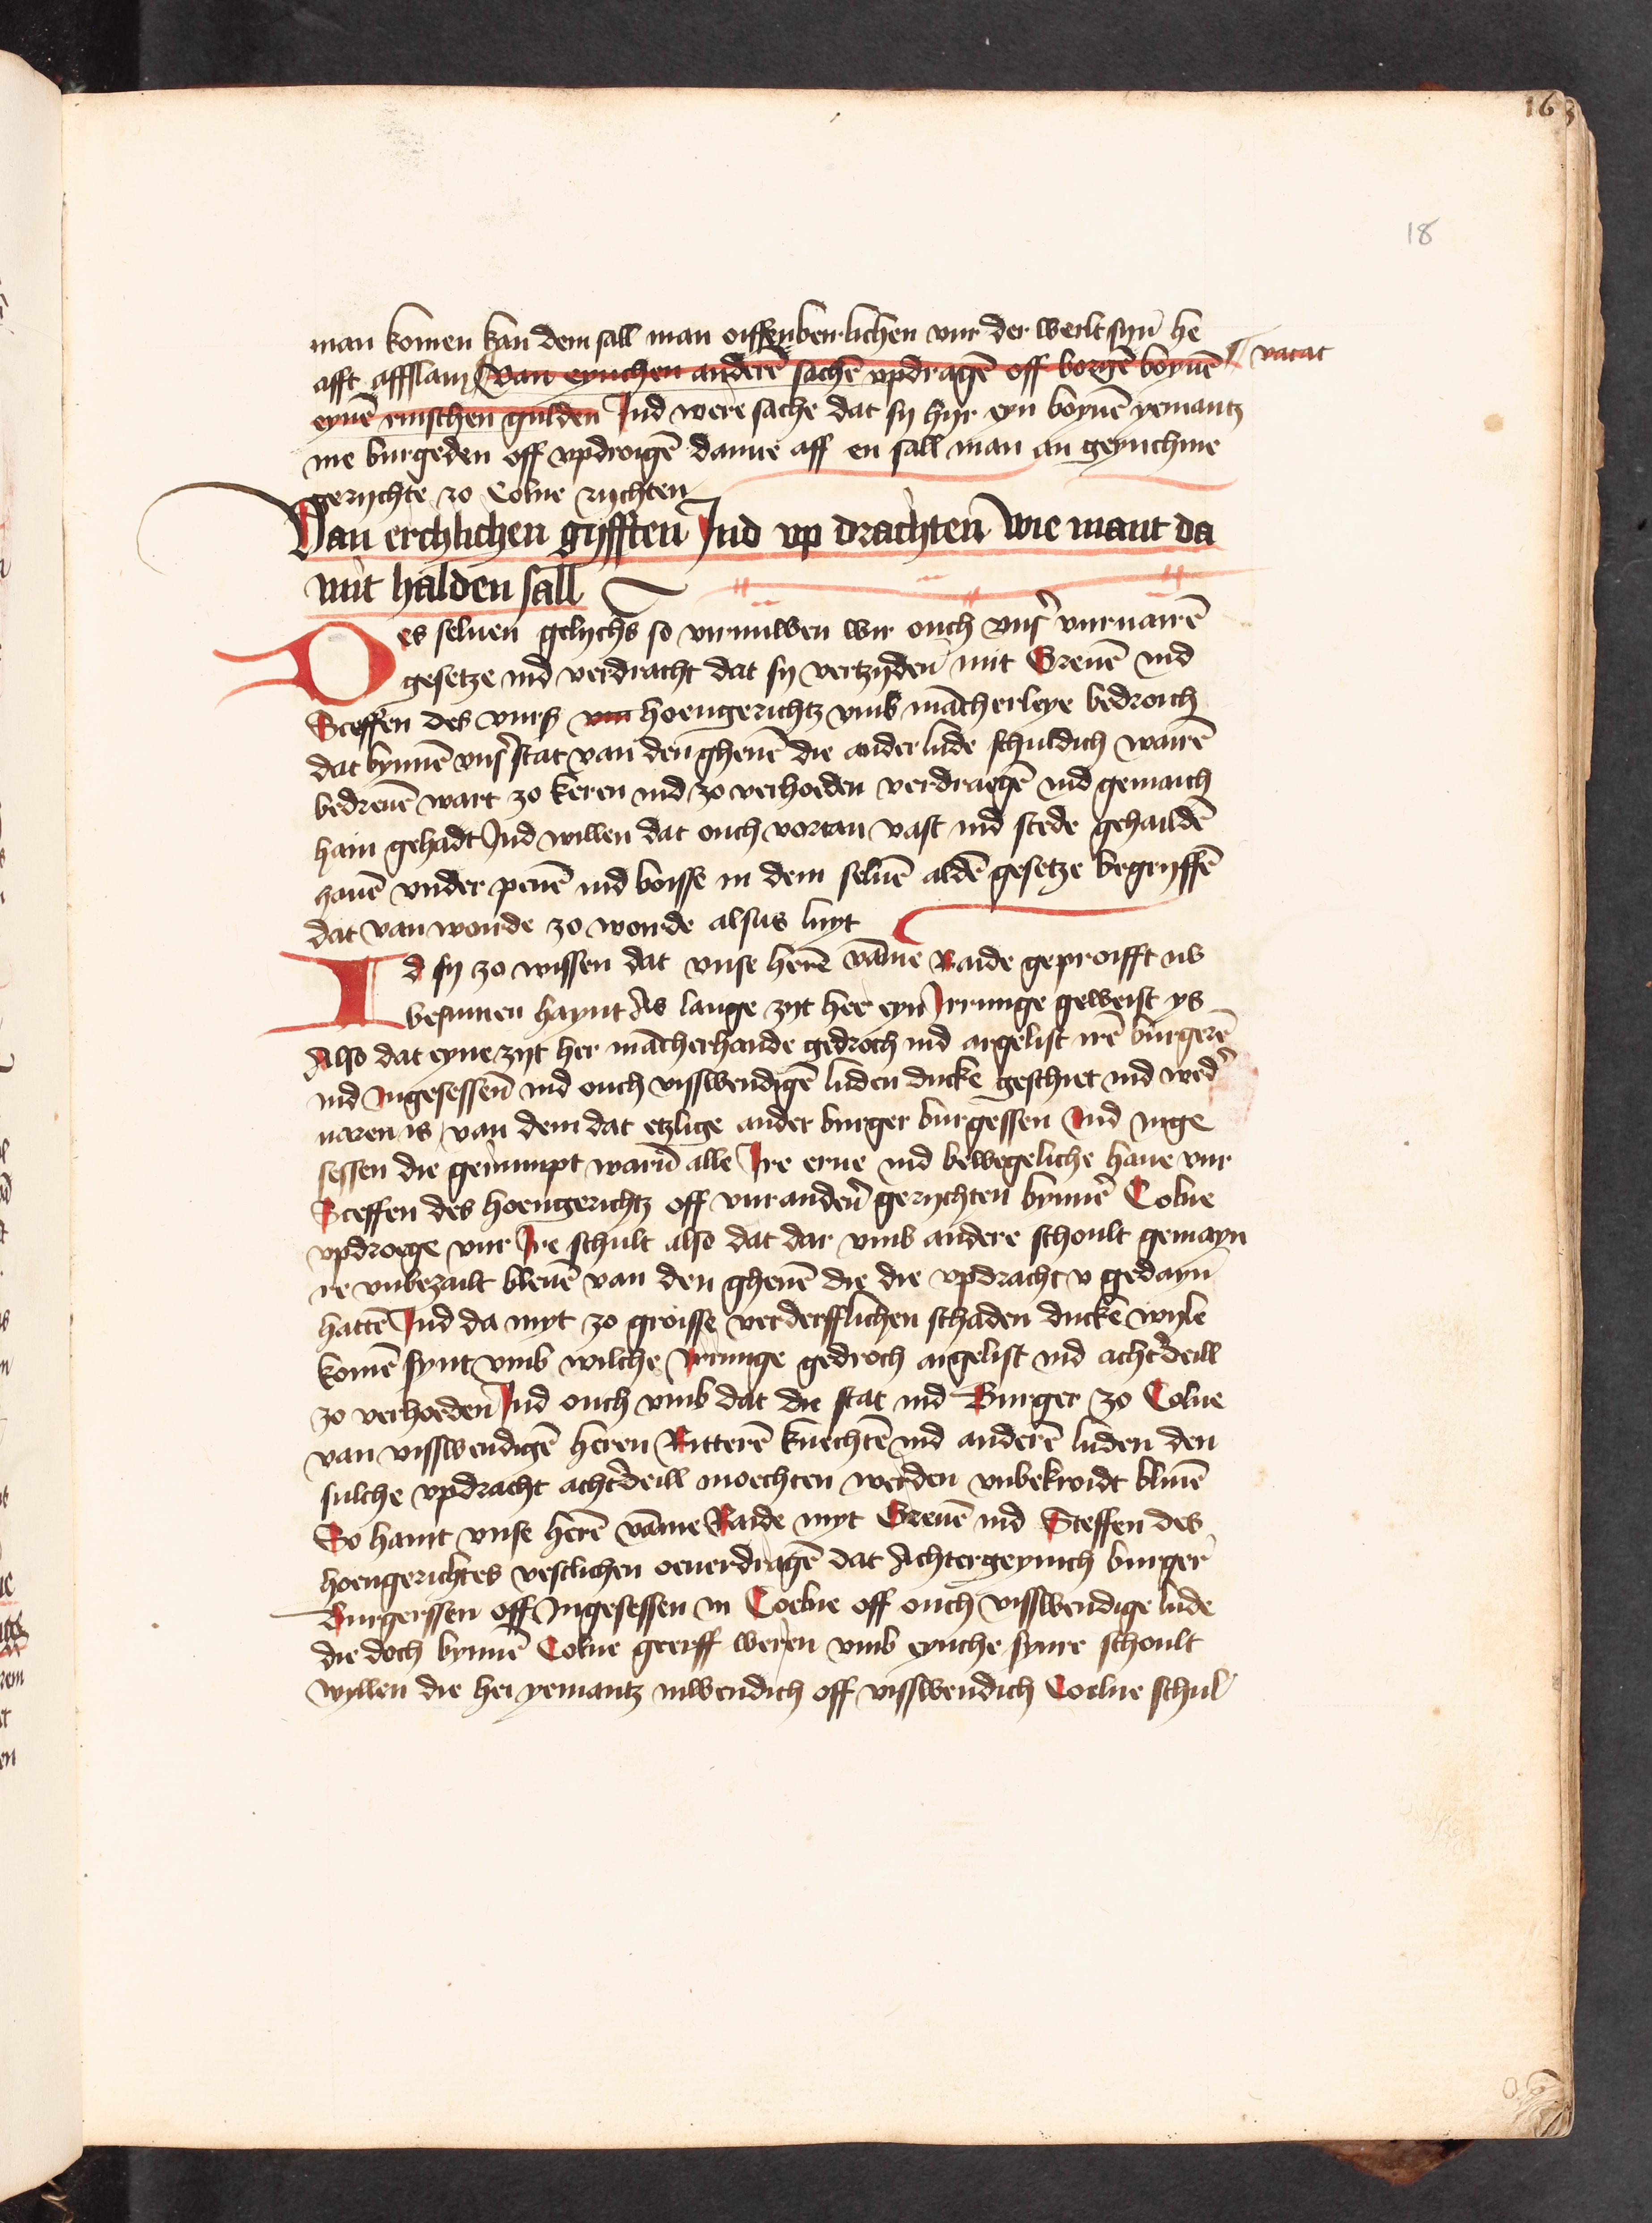 16
18
man komen kan dem sall man oiffenberlichen vur der werlt syn he
afft affslain Van eynchen anderē sachē vpdragē off borgē boyuē vacat
eynē rinschen gulden Ind were sache dat sy hyr eyn boyuē yemantz
me burgeden off vpdroigē danne aff en sall man an geynchme
gerychte zo Colne rychten
Van erchlichen gyfften Ind vp drachten wie mant da
mit halden sall
Des seluen gelychs so virnuwen wir ouch vns' vuruairē
gesetze ind verdracht dat sy vertzyden mit Greuē ind
Sceffen des vurs hoengerichtz vmb mācherleye bedroich
dat bynnē vns' stat van den ghenē die ander lude schuldich wairē
bedreuē wart zo keren ind zo verhoeden verdraegē ind gemaich
hain gehadt Ind willen dat ouch vortan vast ind stede gehaildē
hauē vnder penē ind boisse in dem seluē aldē gesetze begryffē
dat van worde zo worde alsus luyt
Id sy zo wissen dat vnse herē vāme Raide geproifft us
besunnen haynt As lange zyt her eyn Irrunge geweist ys
Also dat eyne zyt her mācherhande gedroch ind argelist irē burgerē
ind Ingesessen ind ouch visswendigē luden ducke geschiet ind wed'
uaren is van dem dat etzlige ander burger burgessen Ind inge
sessen die geruympt warē alle Ire erue ind bewegeliche haue vur
Sceffen des hoengerichtz off vur ander' gerychten bynnē Colne
vpdroege vur Ire schult also dat dar vmb andere schoult gemayn
re vnbezailt bleuē van den ghenē die die vpdracht v gedayn
hattē Ind da myt zo groisse verderfflichen schaden ducke wyle
komē synt vmb wilche Irrunge gedroch argelist ind acht'deill
zo verhoeden Ind ouch vmb dat die stat ind Burger zo Colne
van visswendigē heren Ritterē knechtē ind anderē luden den
sulche vpdracht acht'deill moechten werden vnbekroidt bliuē
So haint vnse herē vāme Raide myt Greuē ind Sceffen des
hoengerichtes vestlichen oeuerdragē dat Achtergeynich burger
Burgerssen off Ingesessen in Coelne off ouch visswendige lude
die doch bynnē Colne geerff weren vmb eynche syme schoult
wyllen die hei yemantz inwendich off visswendich Coelne schul